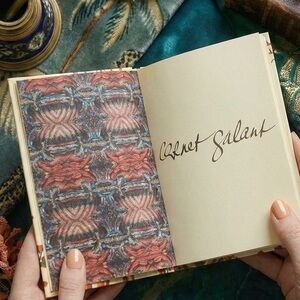 carnet galant